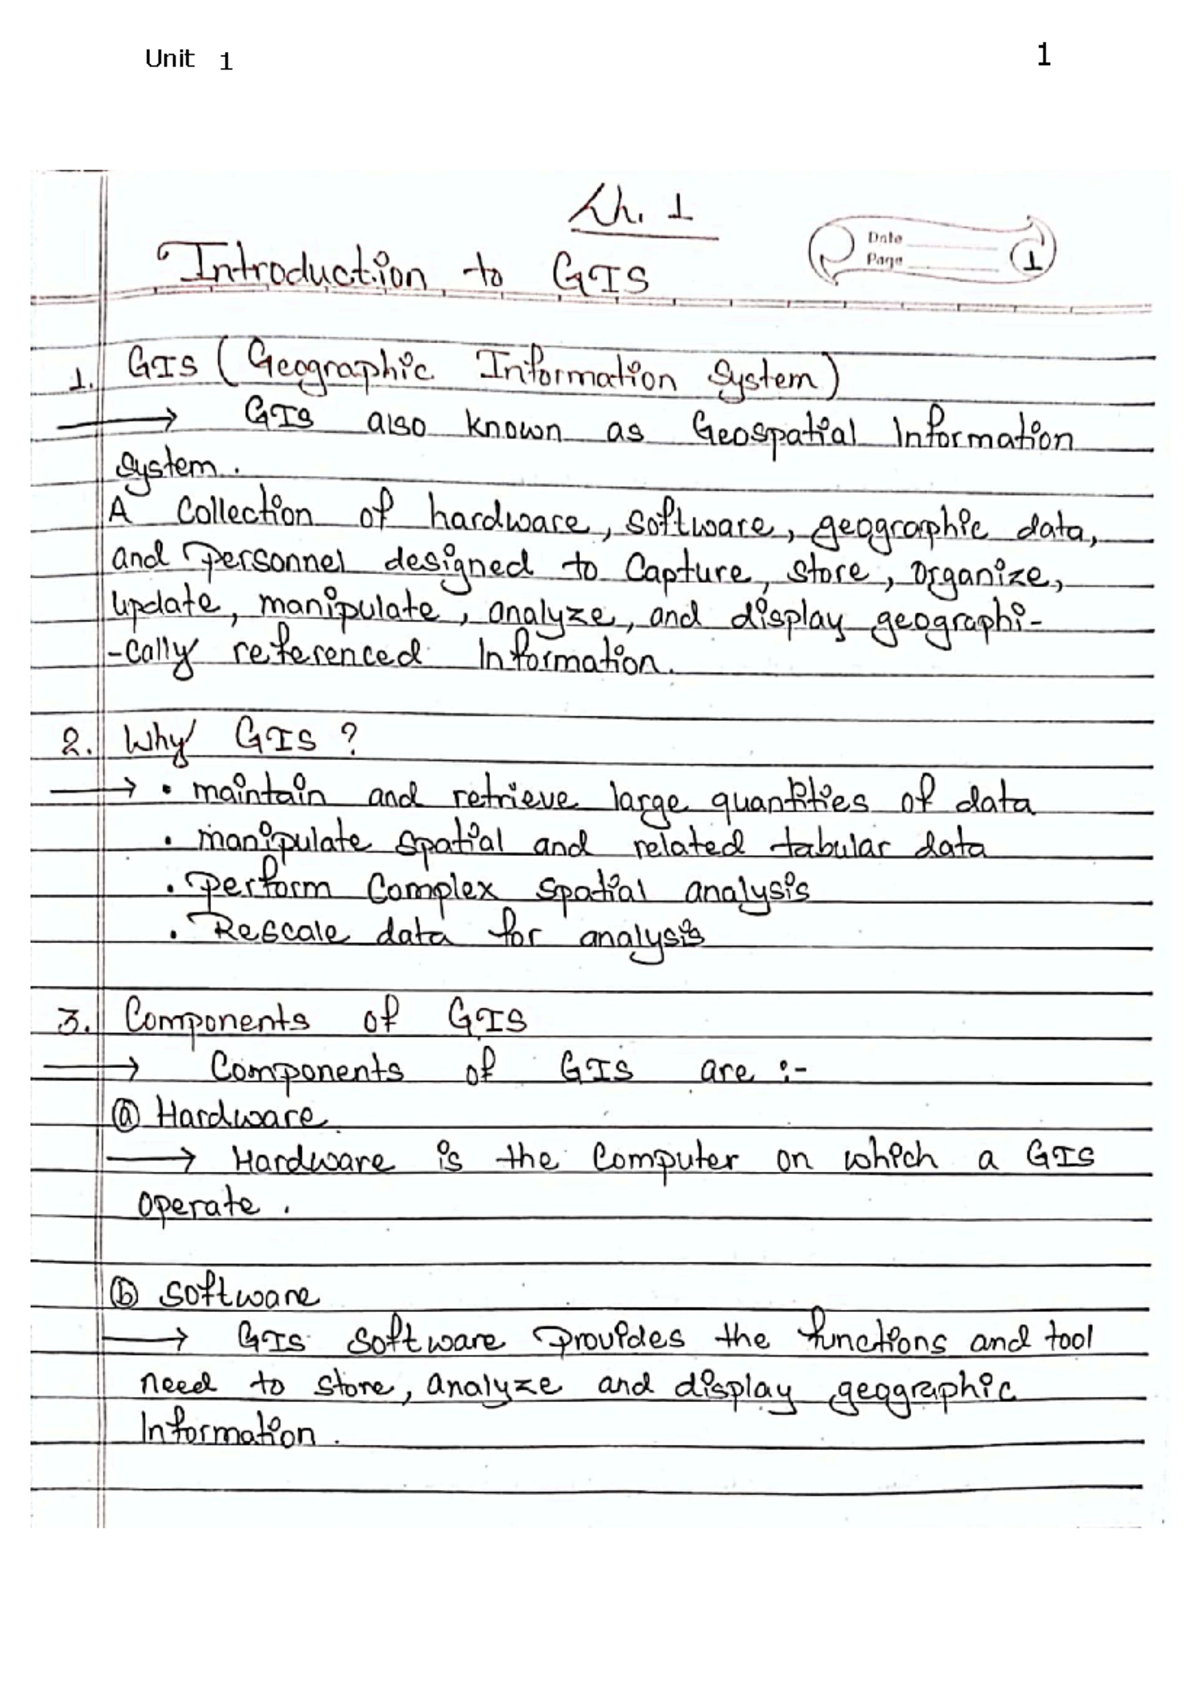 Unit 1
1
Ch. 1
Date
Page 1
Introduction to GIS
1. GIS (Geographic Information System)
→ GIS also known as Geospatial Information
System.
A Collection of hardware, software, geographic data,
and Personnel designed to Capture, store, organize,
update, manipulate, analyze, and display geographi-
-cally referenced Information.
2. Why GIS ?
→ • maintain and retrieve large quantities of data
• manipulate spatial and related tabular data
• Perform Complex spatial analysis
• Rescale data for analysis
3. Components of GIS
→ Components of GIS are :-
ⓐ Hardware
→ Hardware is the Computer on which a GIS
operate.
ⓑ Software
→ GIS Software Provides the functions and tool
need to store, analyze and display geographic
Information.